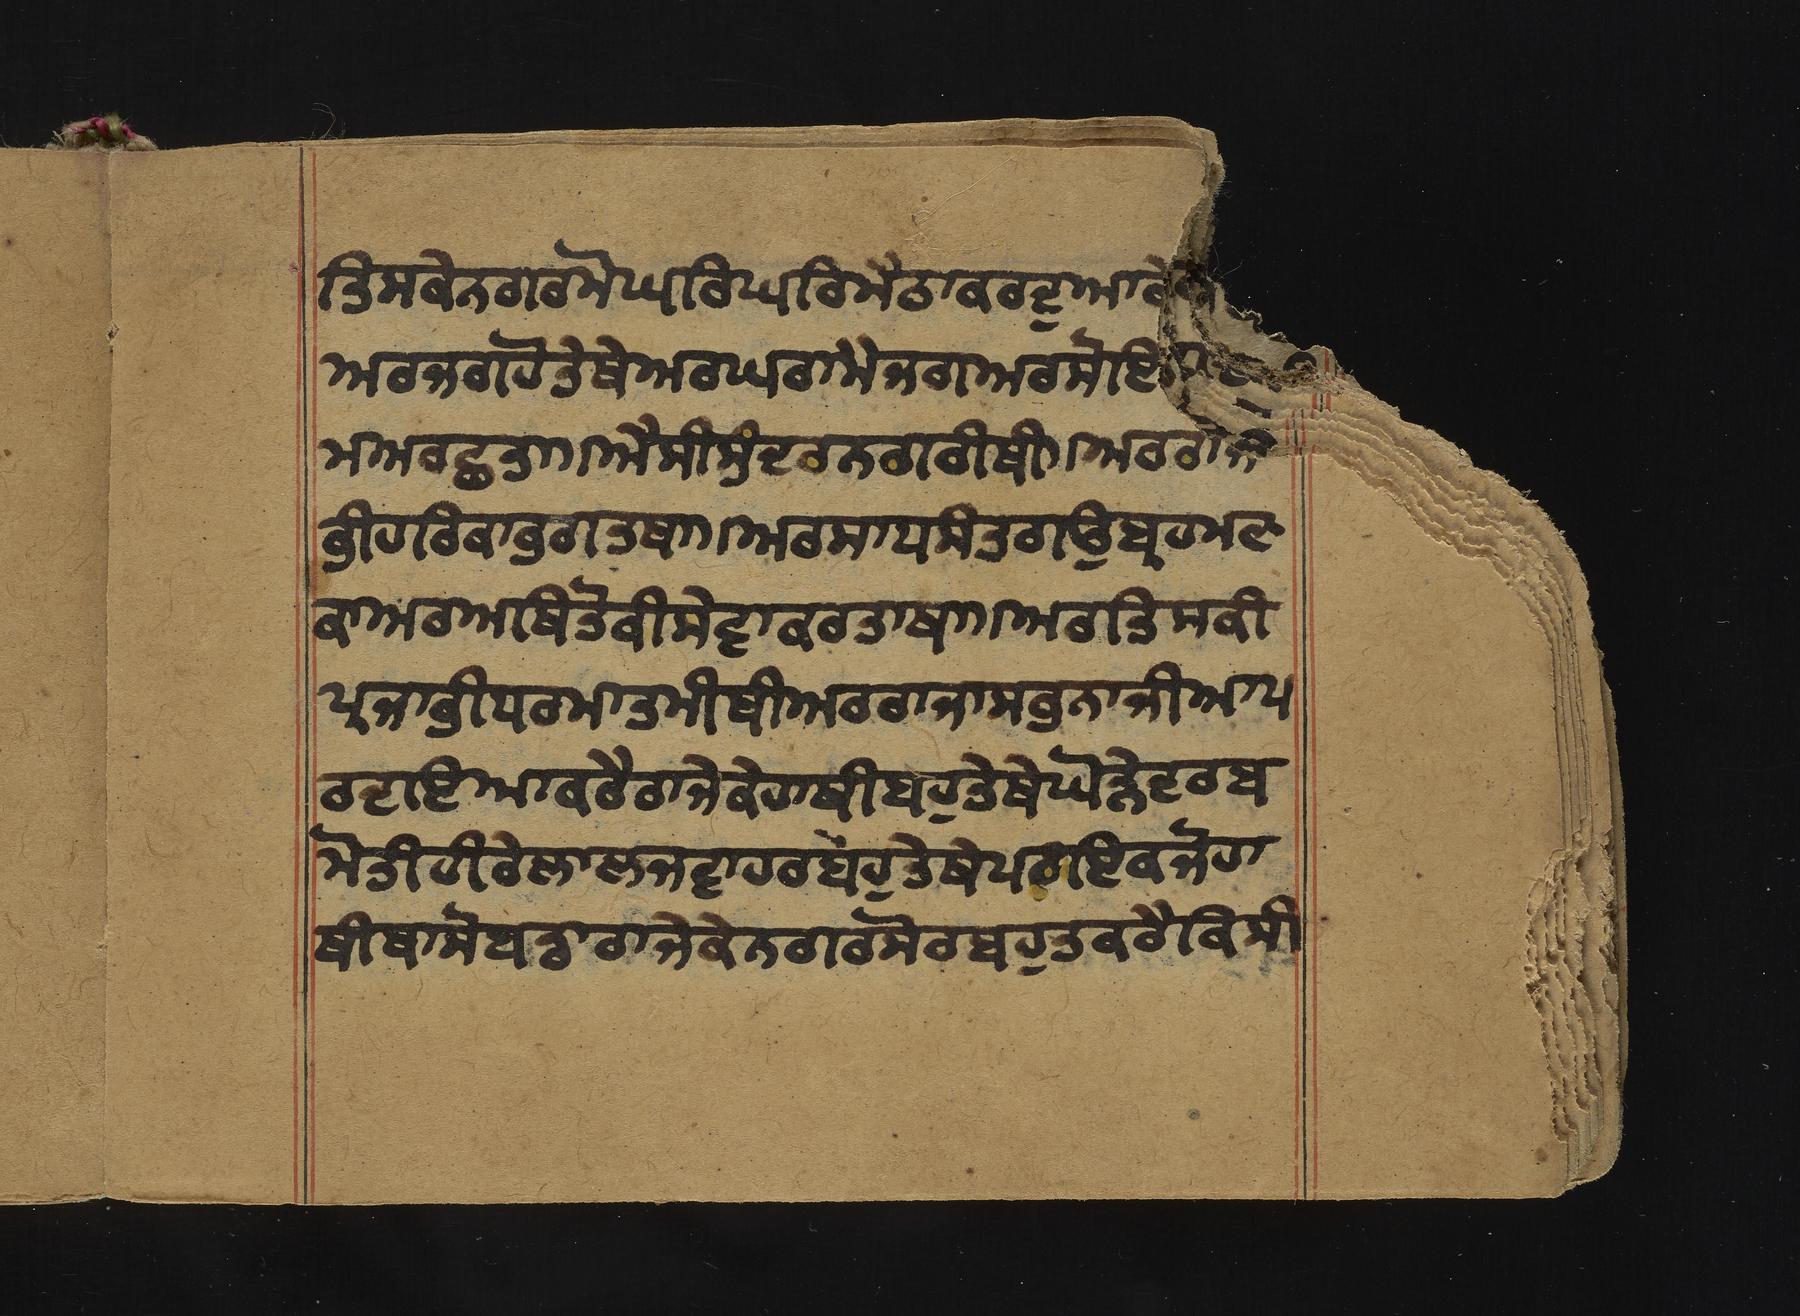 ਤਿਸਕੇਨਗਰਮੋਘਰਿਘਰਿਮੈਠਾਕਰਦੁਆਰੇ
ਅਰਜਗਹੋਤੇਥੇਅਰਘਰਾਮੈਜਗਅਰਸੋਇ
ਮਅਰਛਤਾ।ਐਸੀਸੁੰਦਰਨਗਰੀਥੀ।ਅਰਰਾਜਾ
ਭੀਹਰਿਕਾਭਗਤਥਾ।ਅਰਸਾਧਸੰਤਗਊਬ੍ਰਹਮਣ
ਕਾਅਰਅਥਿਤੋਕੀਸੇਵਾਕਰਤਾਥਾ।ਅਰਤਿਸਕੀ
ਪ੍ਰਜਾਭੀਧਰਮਾਤਮੀਥੀਅਰਰਾਜਾਸਭਨਾਜੀਆਪ
ਰਦਇਆਕਰੈਰਾਜੇਕੇਹਾਥੀਬਹੁਤੇਥੇਘੋੜੇਦਰਬ
ਮੋਤੀਹੀਰੇਲਾਲਜਵਾਹਰਬਹੁਤੇਥੇਪਰਾਇਕਜੋਹਾ
ਥੀਥਾਸੋਬਡਾਰਾਜੇਕੇਨਗਰਸੋਰਬਹੁਤਕਰੈਕਿਸੀ